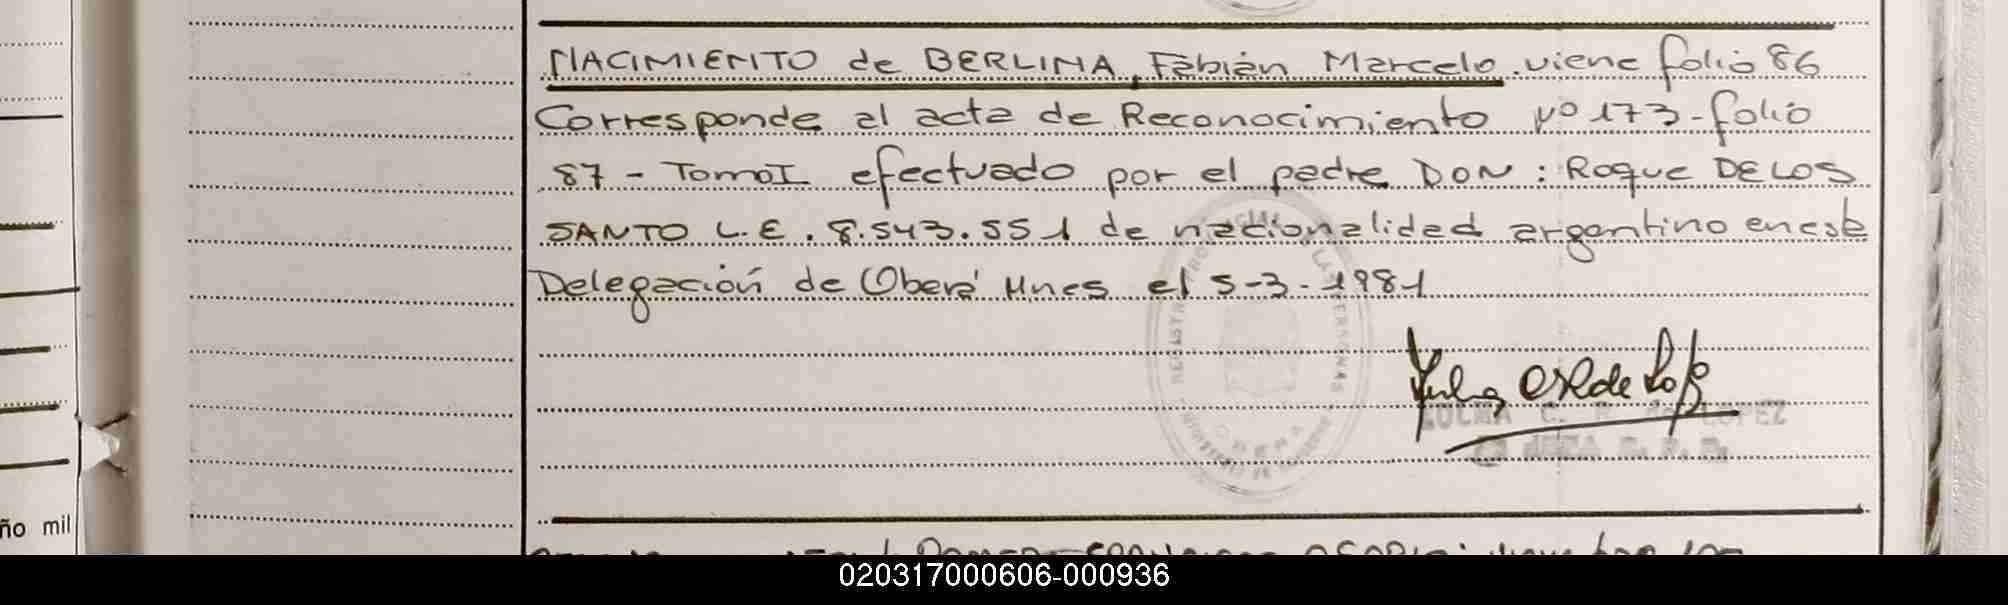 NACIMIENTO de BERLINA, Fabián Marcelo. viene folio 86
Corresponde al acta de Reconocimiento Nº 173 - folio
87 - Tomo I efectuado por el padre DON : Roque DE LOS
SANTO L.E. 8.543.551 de nacionalidad argentino en este
Delegación de Oberá Mnes el 5-3-1981
LOPEZ
ño mil
020317000606-000936